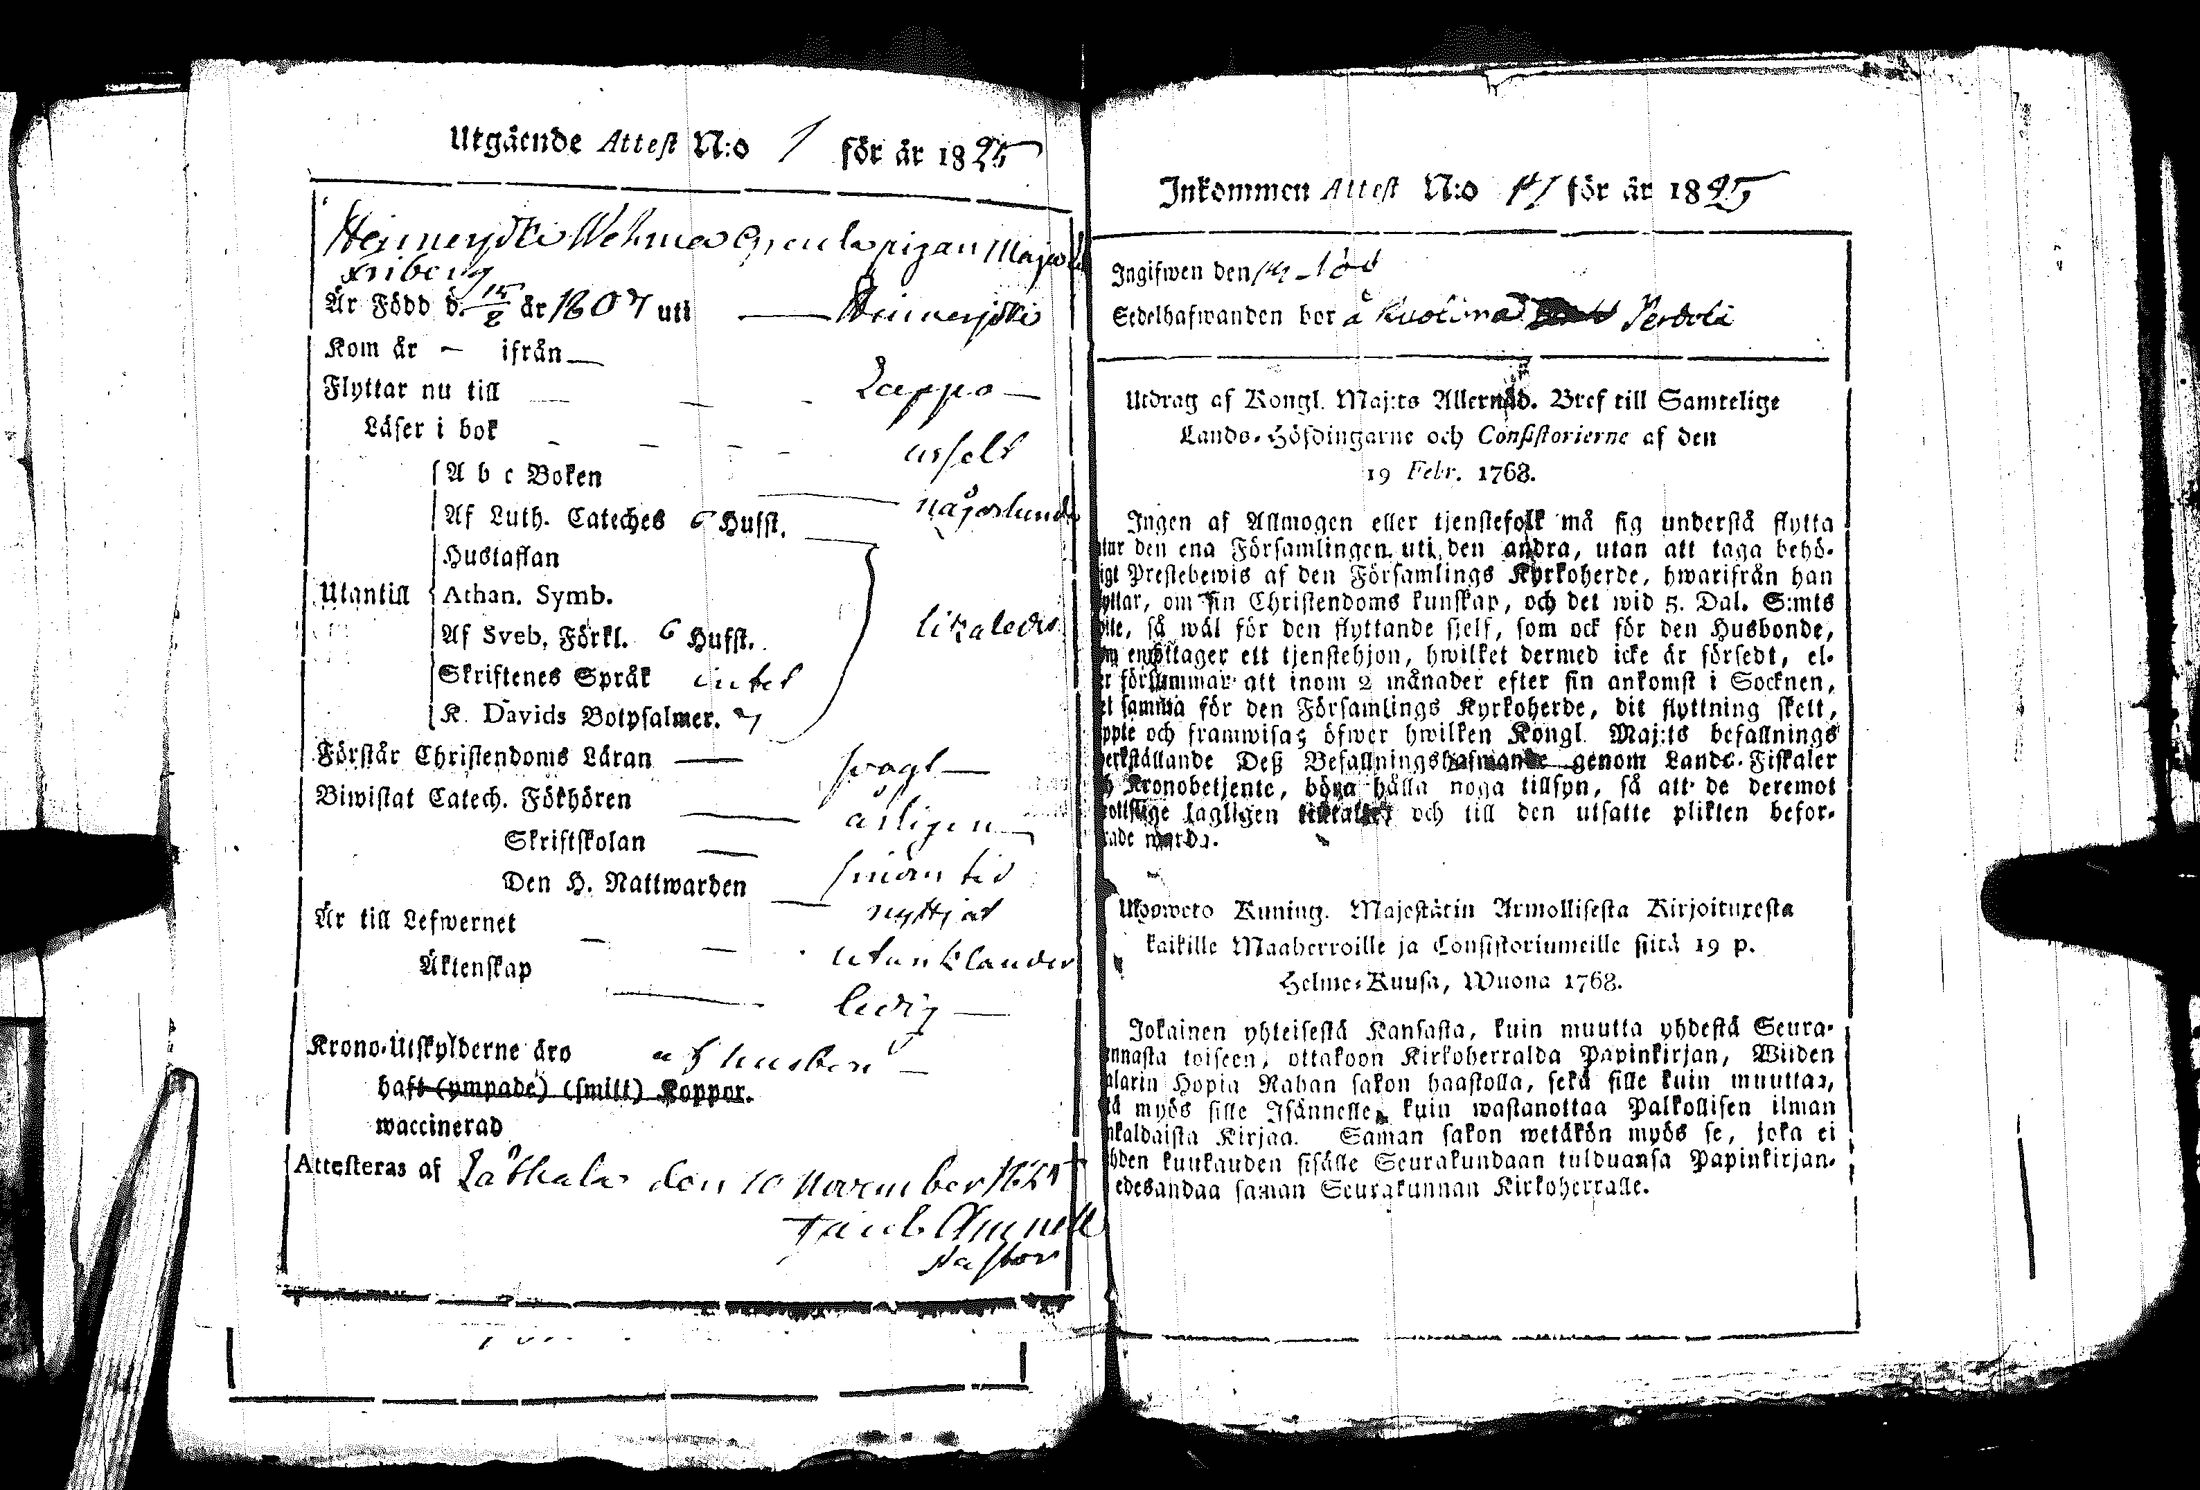 Utgående Attest N:o 1 för år 1825
Heinerjoki Wehmas pigan Maja
Friberg
Är Född d. 15/8 år 1807 uti — Heinerjoki
Kom år — ifrån —
Flyttar nu till — Lappo —
Läser i bok - - - - uselt
A b c Boken
Af Luth. Cateches 6 Hufst. någorlunda
Hustaflan
Utantill Athan. Symb. likaledes
Af Sveb. Förkl. 6 Hufst.
Skriftenes Språk intet
K. Davids Botpsalmer. 7
Förstår Christendoms Läran — svagt —
Biwistat Catech. Förhören — årligen —
Skriftskolan — sin tid
Den H. Nattwarden — nyttjat
Är till Lefwernet - - - utan klander
Äktenskap — ledig —
Krono-Utskylderne äro af husbon —
haft (ympade) (smitt) Koppor.
waccinerad
Attesteras af Låthala den 10 November 1825
Jacob Amnell
Pastor
Inkommen Attest N:o 41 för år 1825
Ingifwen den
Sedelhafwanden bor å Perdola
Utdrag af Kongl. Maj:ts Allernåd. Bref till Samtelige
Lands-Höfdingarne och Consistorierne af den
19 Febr. 1768.
Ingen af Allmogen eller tjenstefolk må sig understå flytta
utur den ena Församlingen uti den andra, utan att taga behö-
igt Prestebewis af den Församlings Kyrkoherde, hwarifrån han
yttar, om sin Christendoms kunskap, och det wid 5. Dal. S:mts
wite, så wäl för den flyttande sjelf, som ock för den Husbonde,
om emottager ett tjenstehjon, hwilket dermed icke är försedt, el-
er försummar att inom 2 månader efter sin ankomst i Socknen,
et samma för den Församlings Kyrkoherde, dit flyttning skett,
uppte och framwisa; öfwer hwilken Kongl. Maj:ts befallnings
werkställande Deß Befallningshafwande genom Lands-Fiskaler
h Kronobetjente, böra hålla noga tillsyn, så att de deremot
rottslige lagligen tilltalas och till den utsatte plikten befor-
rade warda.
Uloweto Kuning. Majestätin Armollisesta Kirjoituxesta
kaikille Maaherroille ja Consistoriumeille siitä 19 p.
Helme-Kuusa, Wuona 1768.
Jokainen yhteisestä Kansasta, kuin muutta yhdestä Seura-
unnasta toiseen, ottakoon Kirkoherralda Papinkirjan, Wiiden
alarin Hopia Rahan sakon haastolla, sekä sille kuin muuttaa,
tä myös sille Isännelle, kuin wastanottaa Palkollisen ilman
nkaldaista Kirjaa. Saman sakon wetäkön myös se, joka ei
hden kuukauden sisälle Seurakundaan tulduansa Papinkirjan-
edesandaa saman Seurakunnan Kirkoherralle.